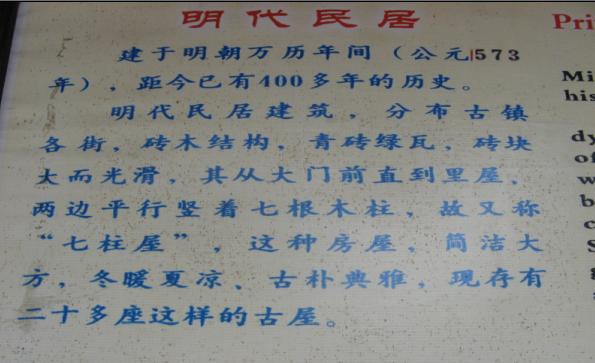 明代民居
建于明朝万历年间（公元1573
年），距今已有400多年的历史。
明代民居建筑，分布古镇
各街，砖木结构，青砖绿瓦，砖块
大而光滑，其从大门前直到里屋，
两边平行竖着七根木柱，故又称
“七柱屋”，这种房屋，简洁大
方，冬暖夏凉、古朴典雅，现存有
二十多座这样的古屋。
Pri
Mi
his
dy
of
w
b
c
S